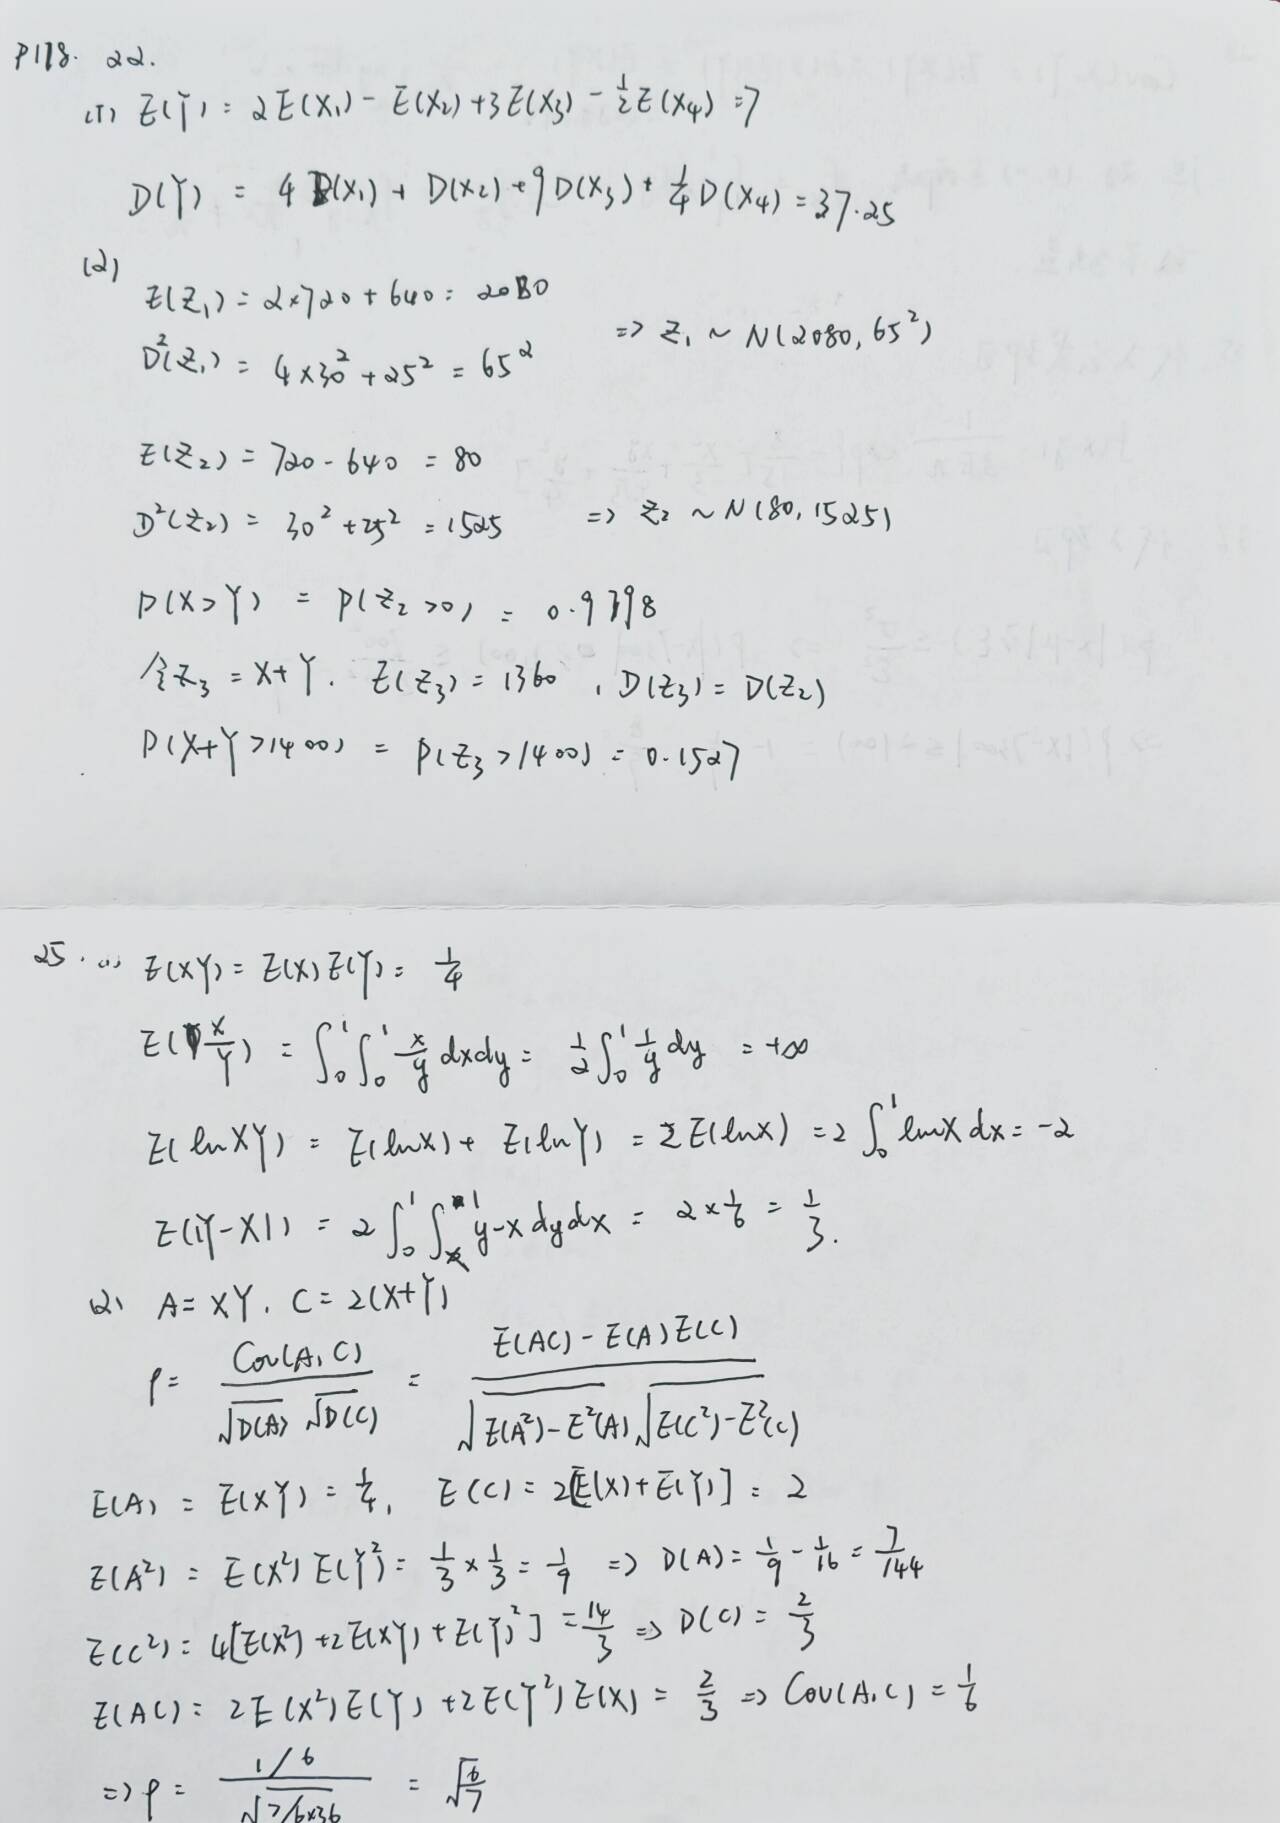 P118. 22.
(1) E(Y) = 2E(X₁) - E(X₂) + 3E(X₃) - ½E(X₄) = 7
D(Y) = 4D(X₁) + D(X₂) + 9D(X₃) + ¼D(X₄) = 37.25
(2)
E(Z₁) = 2×720 + 640 = 2080
D²(Z₁) = 4×30² + 25² = 65² => Z₁ ~ N(2080, 65²)
E(Z₂) = 720 - 640 = 80
D²(Z₂) = 30² + 25² = 1525 => Z₂ ~ N(80, 1525)
P(X>Y) = P(Z₂>0) = 0.9798
令Z₃ = X+Y. E(Z₃) = 1360, D(Z₃) = D(Z₂)
P(X+Y>1400) = P(Z₃>1400) = 0.1527
25. (1) E(XY) = E(X)E(Y) = 1/4
E(X/Y) = ∫₀¹∫₀¹ x/y dxdy = ½∫₀¹ 1/y dy = +∞
E(lnXY) = E(lnX) + E(lnY) = 2E(lnX) = 2∫₀¹ lnx dx = -2
E(|Y-X|) = 2∫₀¹∫ₓ¹ y-x dydx = 2×1/6 = 1/3.
(2) A = XY. C = 2(X+Y)
ρ = Cov(A,C) / √D(A) √D(C) = E(AC) - E(A)E(C) / √E(A²)-E²(A) √E(C²)-E²(C)
E(A) = E(XY) = 1/4, E(C) = 2[E(X)+E(Y)] = 2
E(A²) = E(X²)E(Y²) = 1/3 × 1/3 = 1/9 => D(A) = 1/9 - 1/16 = 7/144
E(C²) = 4[E(X²) + 2E(XY) + E(Y)²] = 14/3 => D(C) = 2/3
E(AC) = 2E(X²)E(Y) + 2E(Y²)E(X) = 2/3 => Cov(A,C) = 1/6
=> ρ = 1/6 / √7/6×36 = √6/7